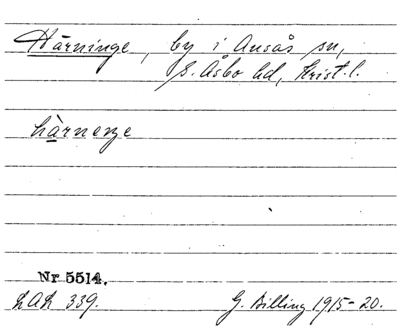 Härninge, by i Ausås sn,
S. Åsbo hd, Krist. l.
Nr. 5514.
LAL 339. G. Billing 1915-20.